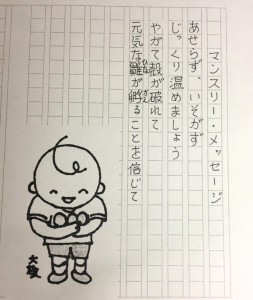 マンスリー・メッセージ
あせらず、いそがず
じっくり温めましょう
やがて殻が破れて
元気な雛が孵ることを信じて